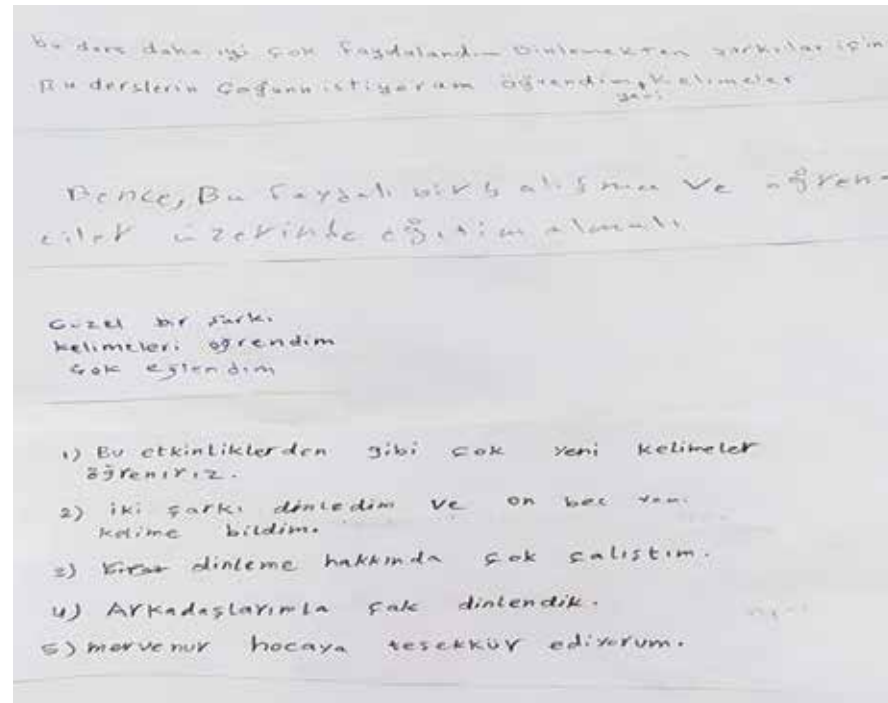 bu ders daha iyi çok faydalandım Dinlemekten şarkılar için
Bu derslerin çoğunu istiyorum öğrendim, kelimeler
yeni
Bence, Bu faydalı bir çalışma Ve öğren-
ciler üzerinde eğitim almalı
Güzel bir şarkı
kelimeleri öğrendim
çok eğlendim
1) Bu etkinliklerden gibi çok yeni kelimeler
öğreniriz.
2) iki şarkı dinledim ve on beş yeni
kelime bildim.
3) dinleme hakkında çok çalıştım.
4) Arkadaşlarımla çok dinlendik.
5) mervenur hocaya teşekkür ediyorum.